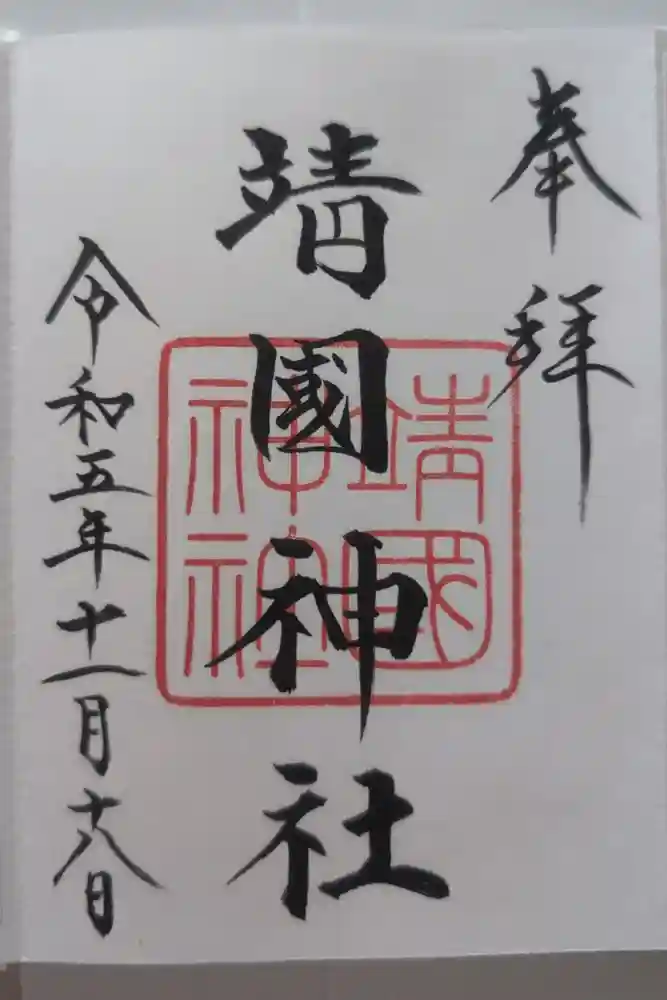 奉拝
靖國神社
靖國
神社
令和五年十一月十八日